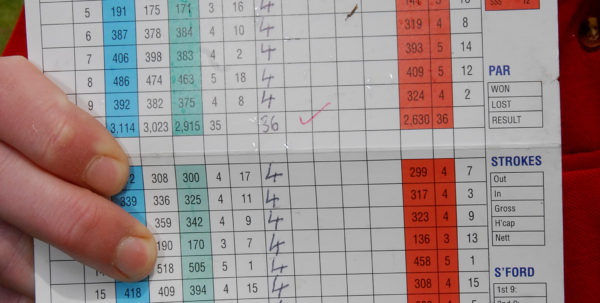 5 191 175 171 3 16 4
SSS 12
6 387 378 384 4 10 4 319 4 8
7 406 398 383 4 2 4 393 5 14
8 486 474 463 5 18 4 409 5 12
PAR
9 392 382 375 4 8 4 324 4 2
WON
LOST
3,114 3,023 2,915 35 36 2,630 36
RESULT
308 300 4 17 4 299 4 7
STROKES
Out
339 336 325 4 11 4 317 4 3
In
Gross
359 342 4 9 4 323 4 9
H'cap
190 170 3 7 4 136 3 13
Nett
518 505 5 1 4 458 5 1
S'FORD
15 418 409 394 4 15 4 308 4 15
1st 9: